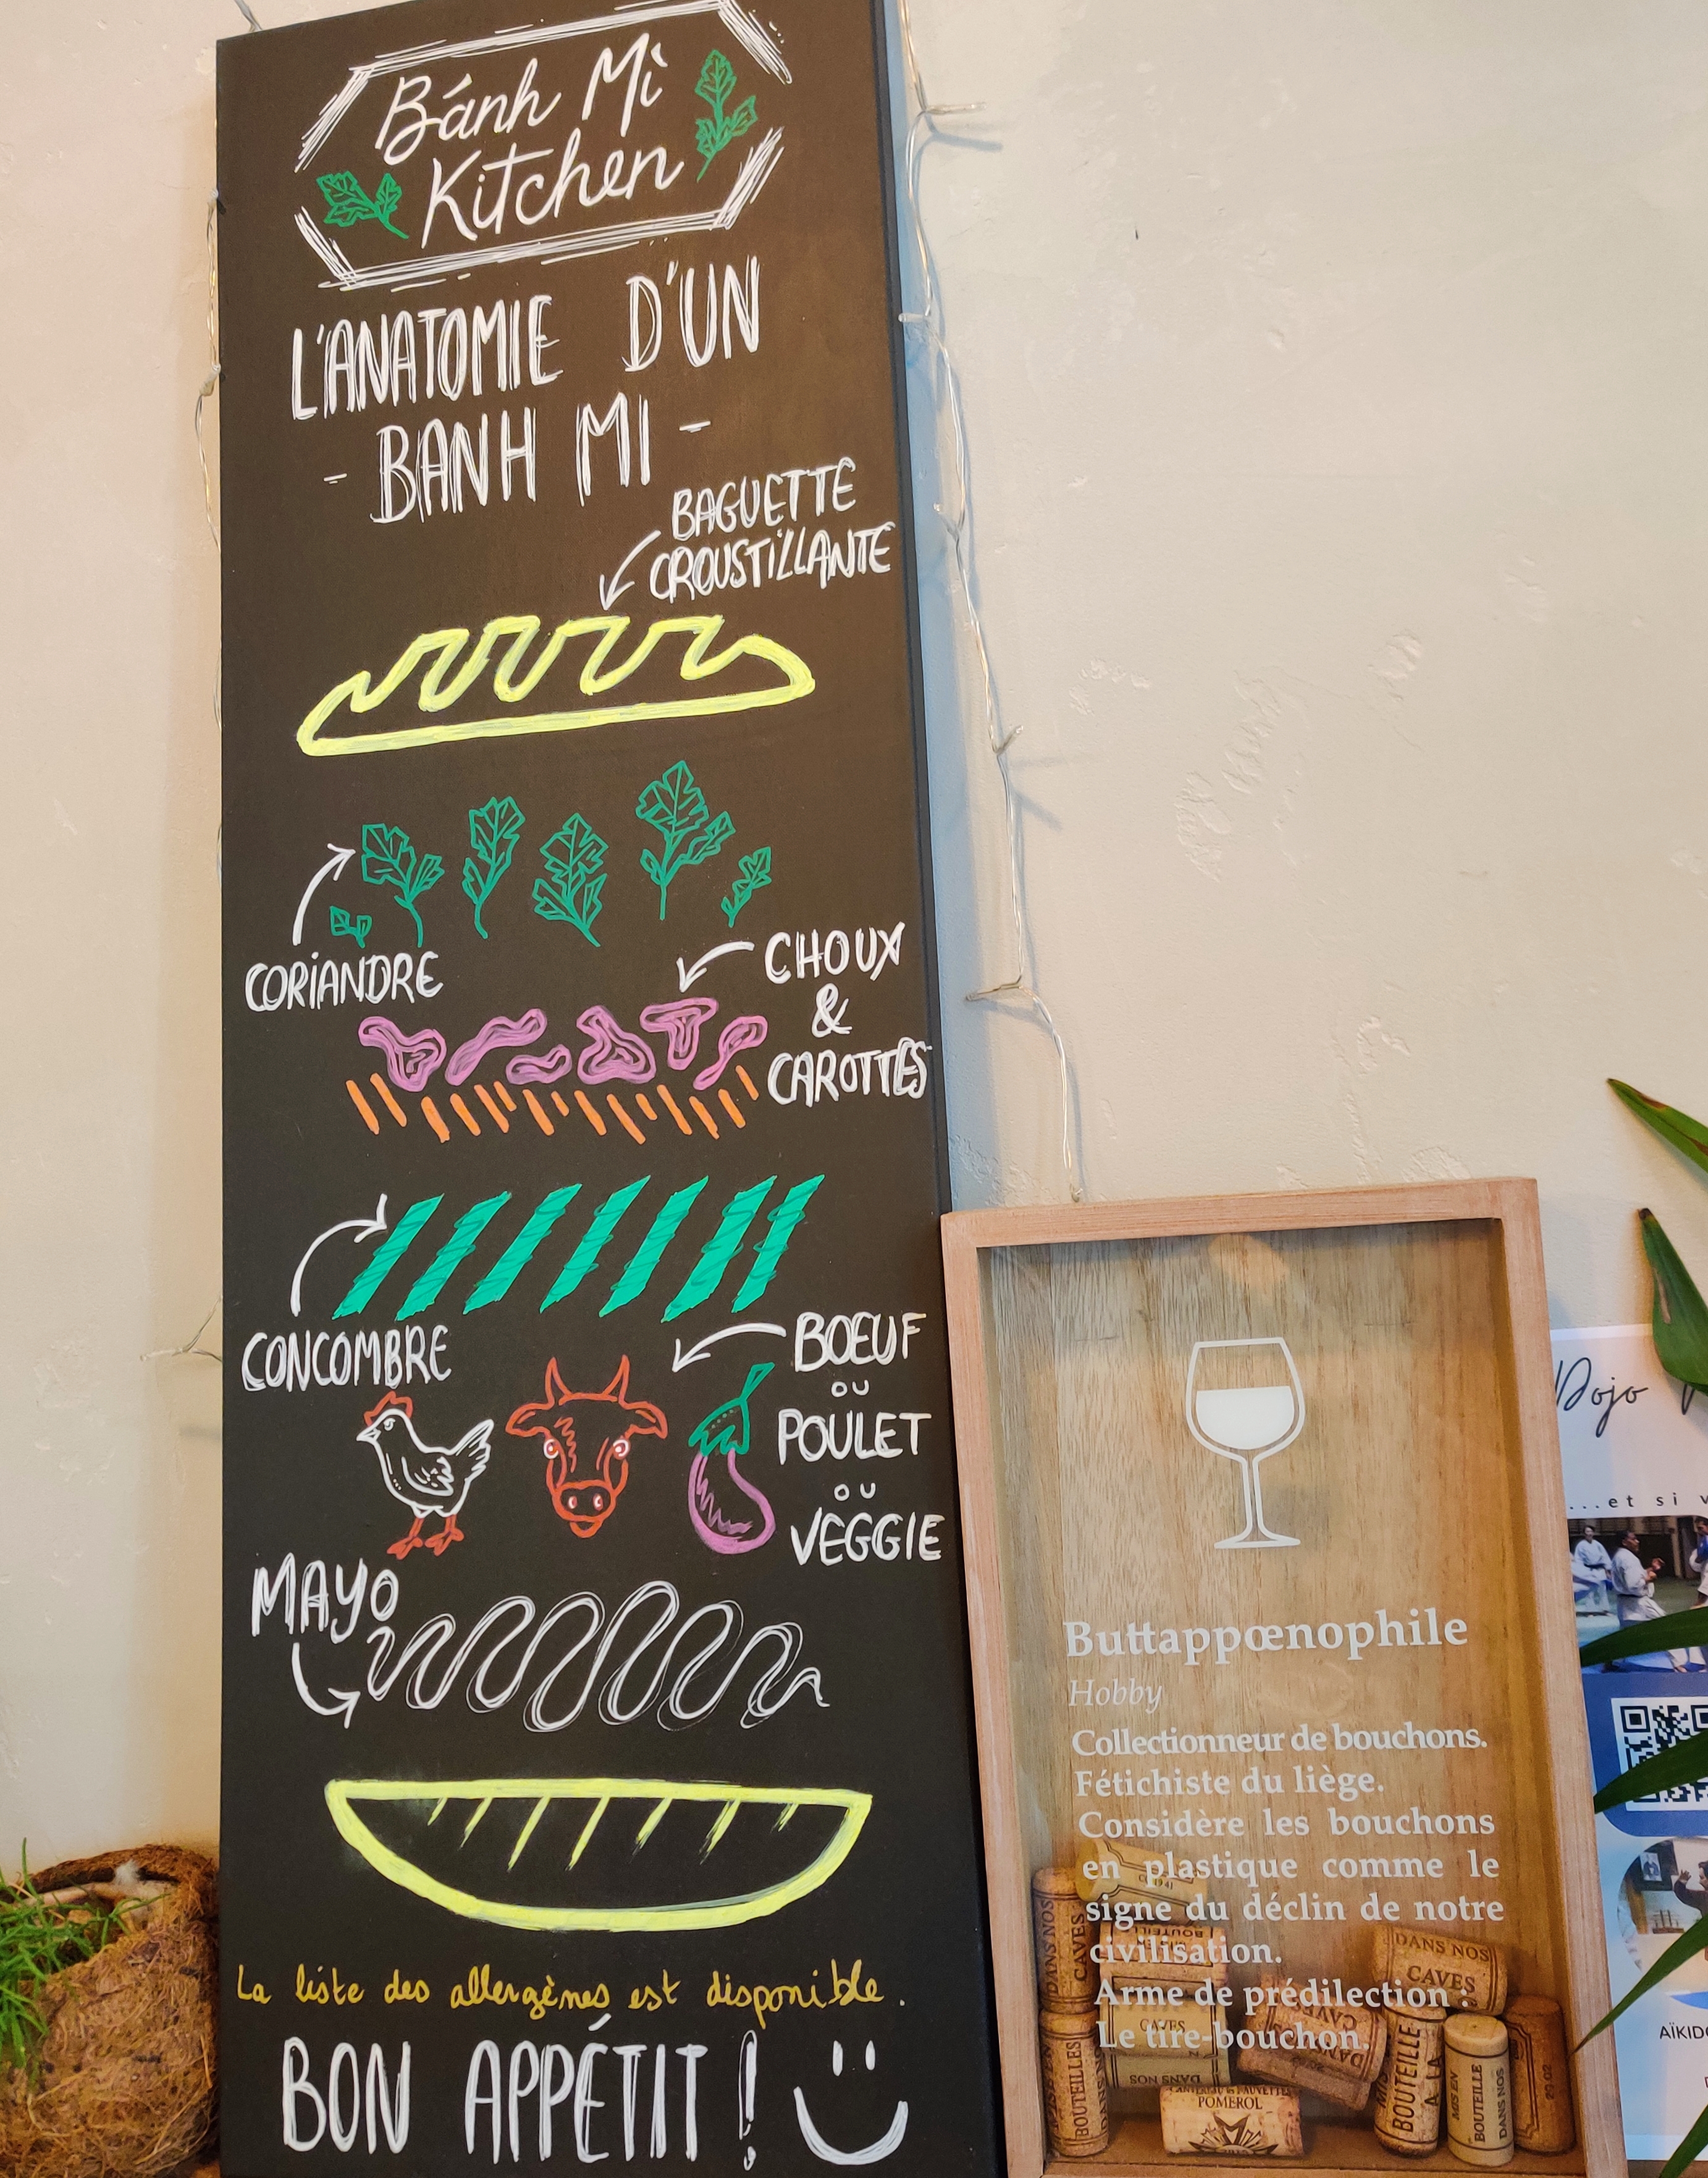 Bánh Mì
Kitchen
L'ANATOMIE D'UN
- BANH MI -
BAGUETTE
CROUSTILLANTE
CORIANDRE
CHOUX
&
CAROTTES
CONCOMBRE
BOEUF
OU
POULET
OU
VEGGIE
MAYO
La liste des allergènes est disponible.
BON APPÉTIT !
Buttappœnophile
Hobby
Collectionneur de bouchons.
Fétichiste du liège.
Considère les bouchons
en plastique comme le
signe du déclin de notre
civilisation.
Arme de prédilection :
Le tire-bouchon.
DANS NOS
CAVES
DANS NOS
CAVES
CAVES
DANS NOS
BOUTEILLES
POMEROL
BOUTEILLE
A LA
MIS EN
BOUTEILLE
DANS NOS
Dojo
...et si v